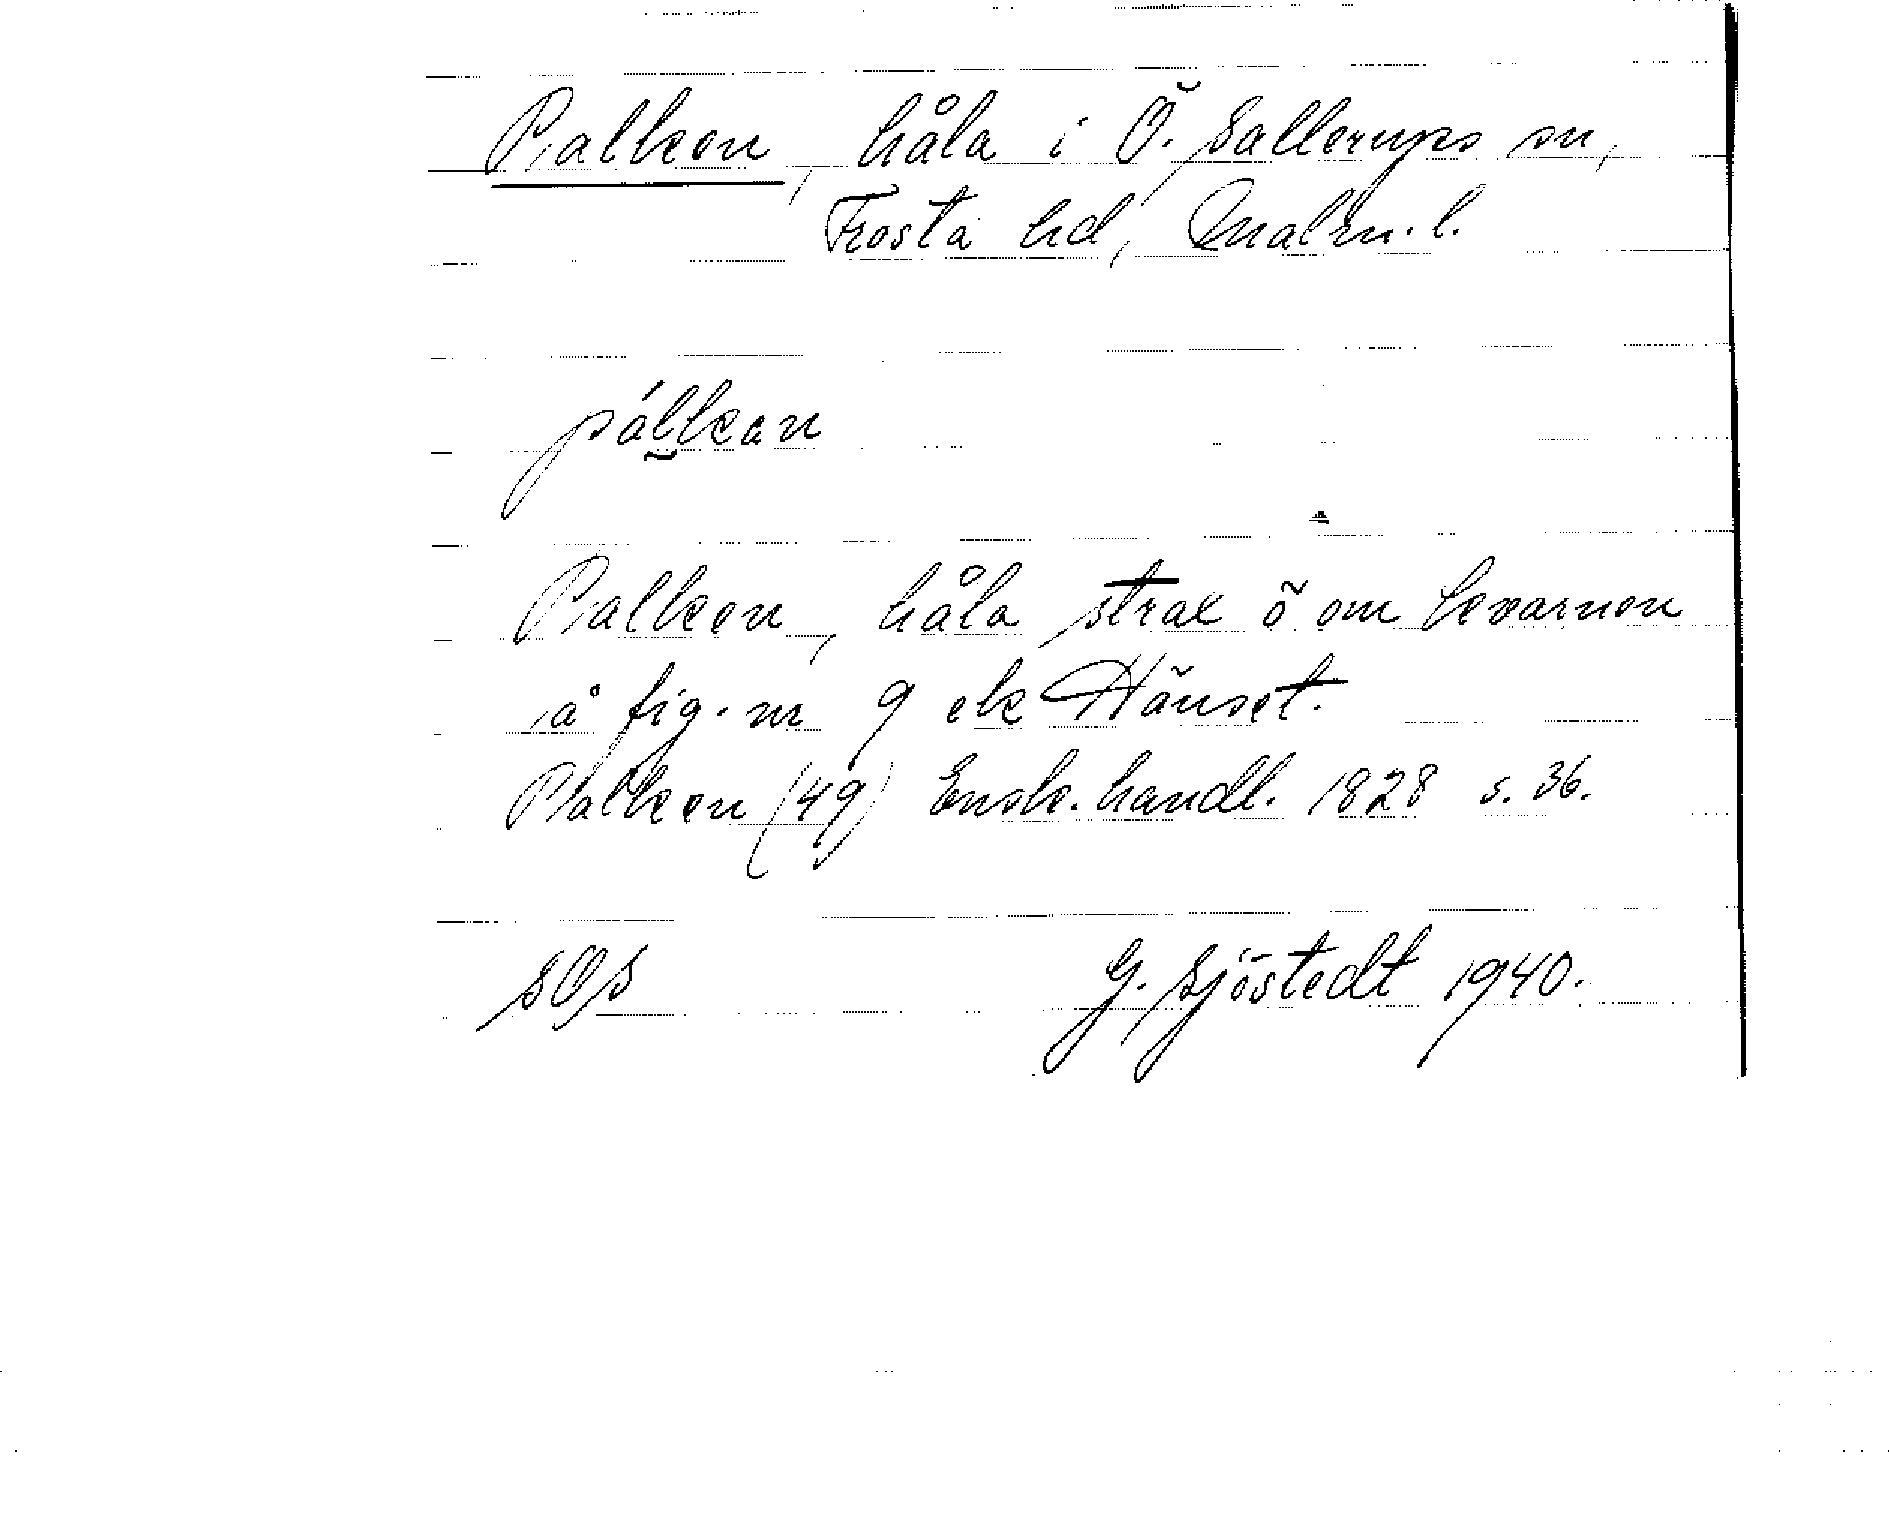 Palken, håla i Ö. Sallerups sn,
Frosta hd, Malm. l.
pálkan
Palken, håla strax ö om kvarnen
å fig. nr 9 ek Hänset.
Palken (49) Ensk. handl. 1828 s. 36.
SOS G. Sjöstedt 1940.